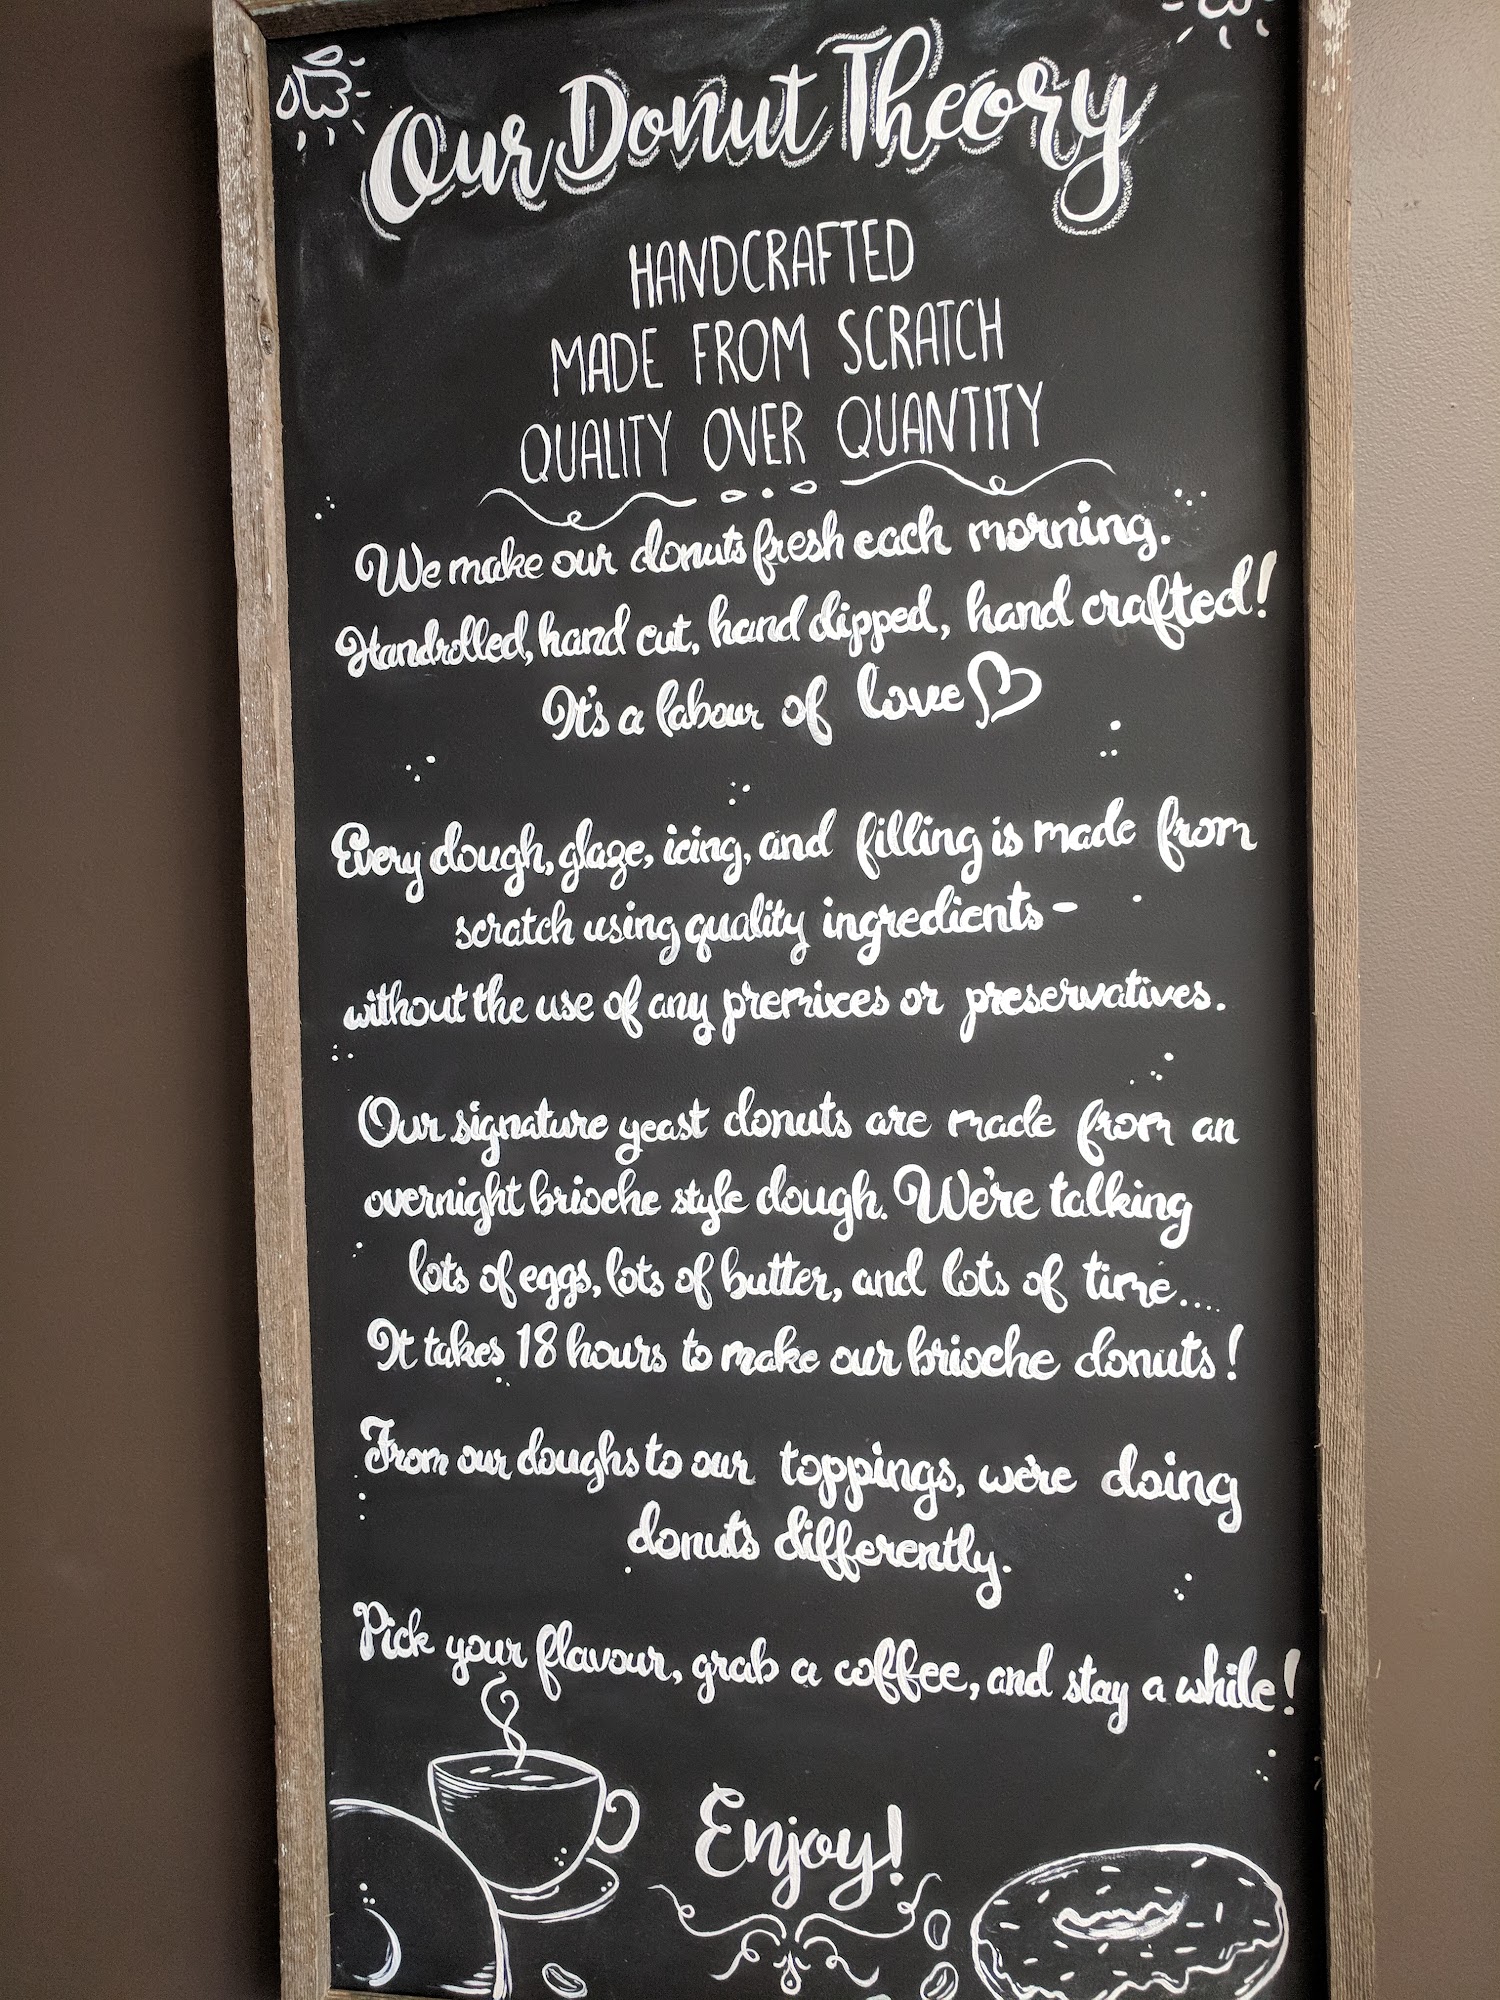 Our Donut Theory
HANDCRAFTED
MADE FROM SCRATCH
QUALITY OVER QUANTITY
We make our donuts fresh each morning.
Handrolled, hand cut, hand dipped, hand crafted!
It's a labour of love
Every dough, glaze, icing, and filling is made from
scratch using quality ingredients-
without the use of any premixes or preservatives.
Our signature yeast donuts are made from an
overnight brioche style dough. We're talking
lots of eggs, lots of butter, and lots of time....
It takes 18 hours to make our brioche donuts!
From our doughs to our toppings, we're doing
donuts differently.
Pick your flavour, grab a coffee, and stay a while!
Enjoy!